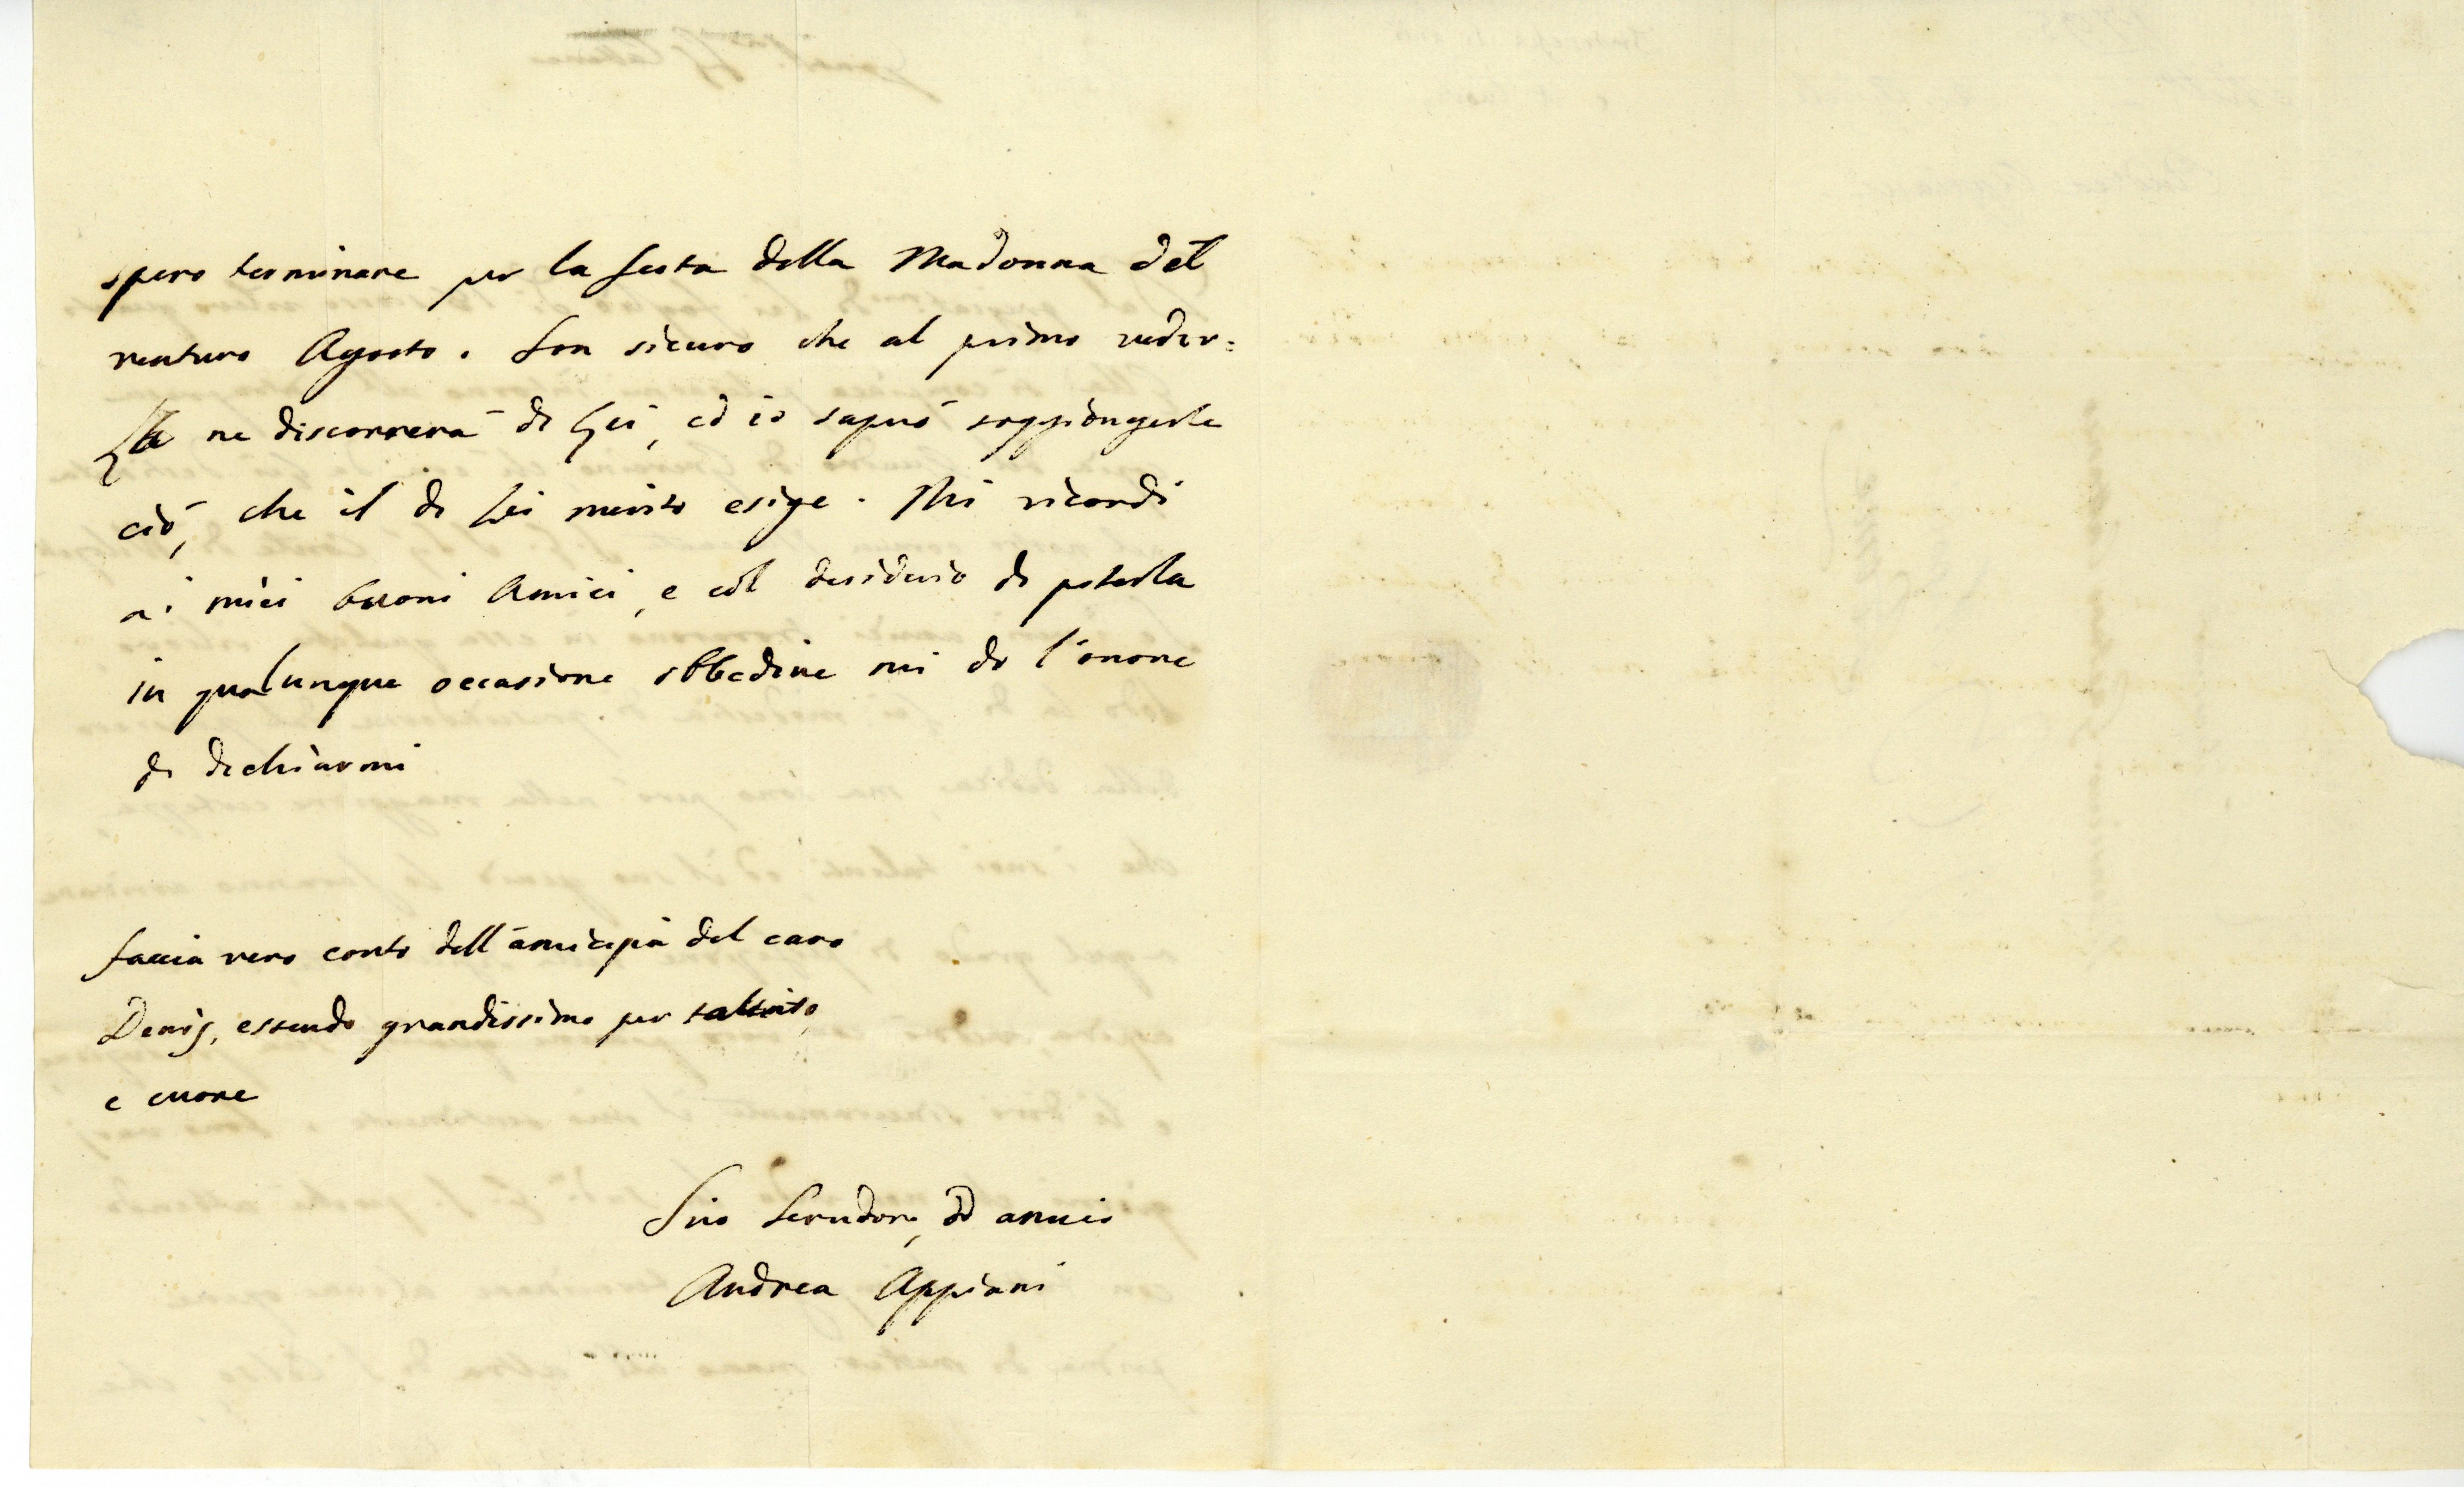 spero terminare per la festa della Madonna del
venturo Agosto. Son sicuro che al primo veder=
la ne discorrerà di Lei, ed io saprò soggiongerle
ciò, che il di Lei merito esige. Mi ricordi
ai miei buoni Amici, e col desiderio di poterla
in qualunque occasione obbedire mi do l'onore
di dichiarmi
faccia vero conto dell'amicizia del caro
Denis, essendo grandissimo per talento,
e cuore
Suo Servidore, ed amico
Andrea Appiani